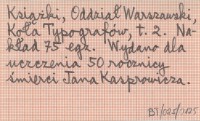 Książki, Oddział Warszawski,
Koła Typografów, t. 2. Na-
kład 75 egz. Wydano dla
uczczenia 50 rocznicy
śmierci Jana Kasprowicza.